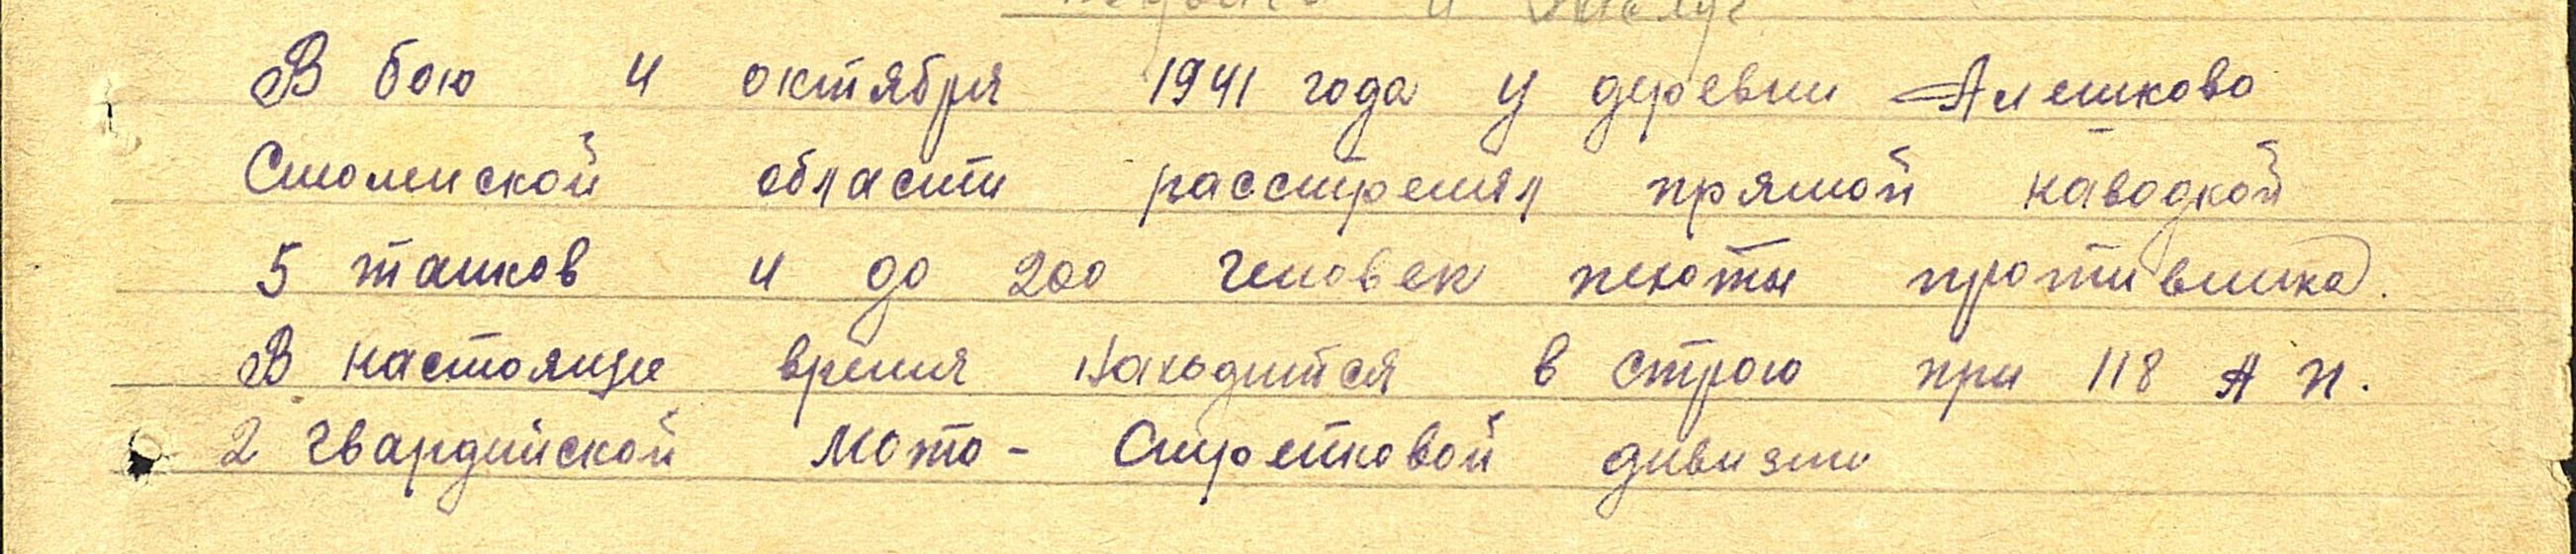 В бою 4 октября 1941 года у деревни Алешково
Смоленской области расстрелял прямой наводкой
5 танков и до 200 человек пехоты противника.
В настояще время находится в строю при 118 А П.
2 гвардийской Мото - Стрелковой дивизии